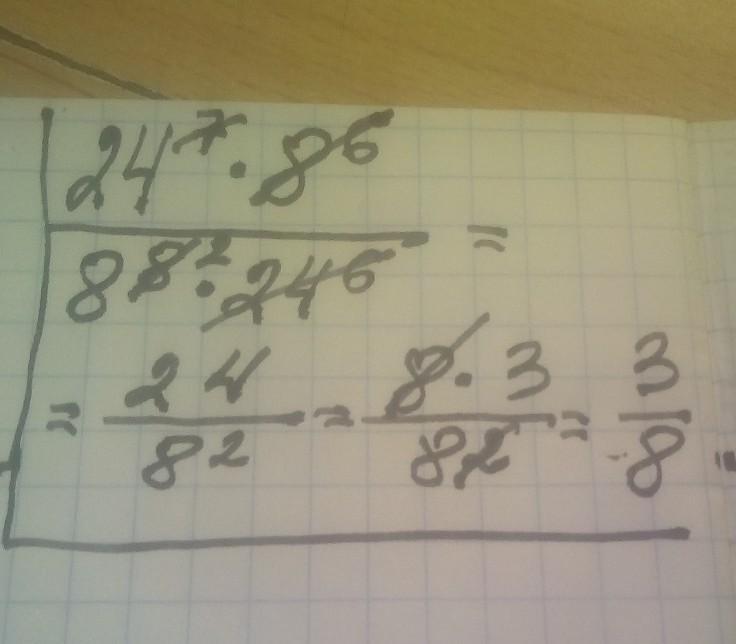 24⁷ · 8⁶
8⁸ ² · 24⁶
=
= 24/8² = 8 · 3/8² = 3/8